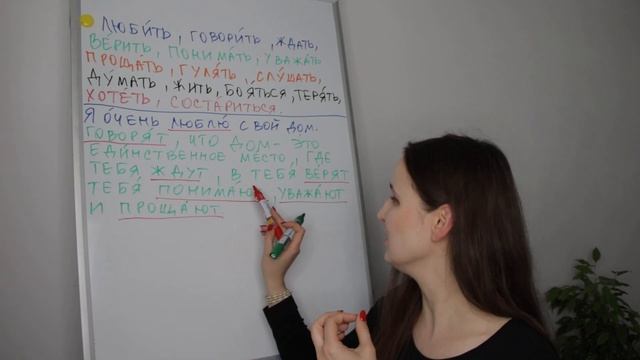 ЛЮБИ́ТЬ, ГОВОРИ́ТЬ, ЖДАТЬ,
ВЕ́РИТЬ, ПОНИМА́ТЬ, УВАЖА́ТЬ
ПРОЩА́ТЬ, ГУЛЯ́ТЬ, СЛУ́ШАТЬ,
ДУ́МАТЬ, ЖИТЬ, БОЯ́ТЬСЯ, ТЕРЯ́ТЬ,
ХОТЕ́ТЬ, СОСТАРИТЬСЯ.
Я О́ЧЕНЬ ЛЮБЛЮ́ СВОЙ ДОМ.
ГОВОРЯ́Т, ЧТО ДОМ - ЭТО
ЕДИ́НСТВЕННОЕ МЕСТО, ГДЕ
ТЕБЯ ЖДУТ, В ТЕБЯ ВЕ́РЯТ
ТЕБЯ́ ПОНИМА́ЮТ, УВАЖА́ЮТ
И ПРОЩА́ЮТ